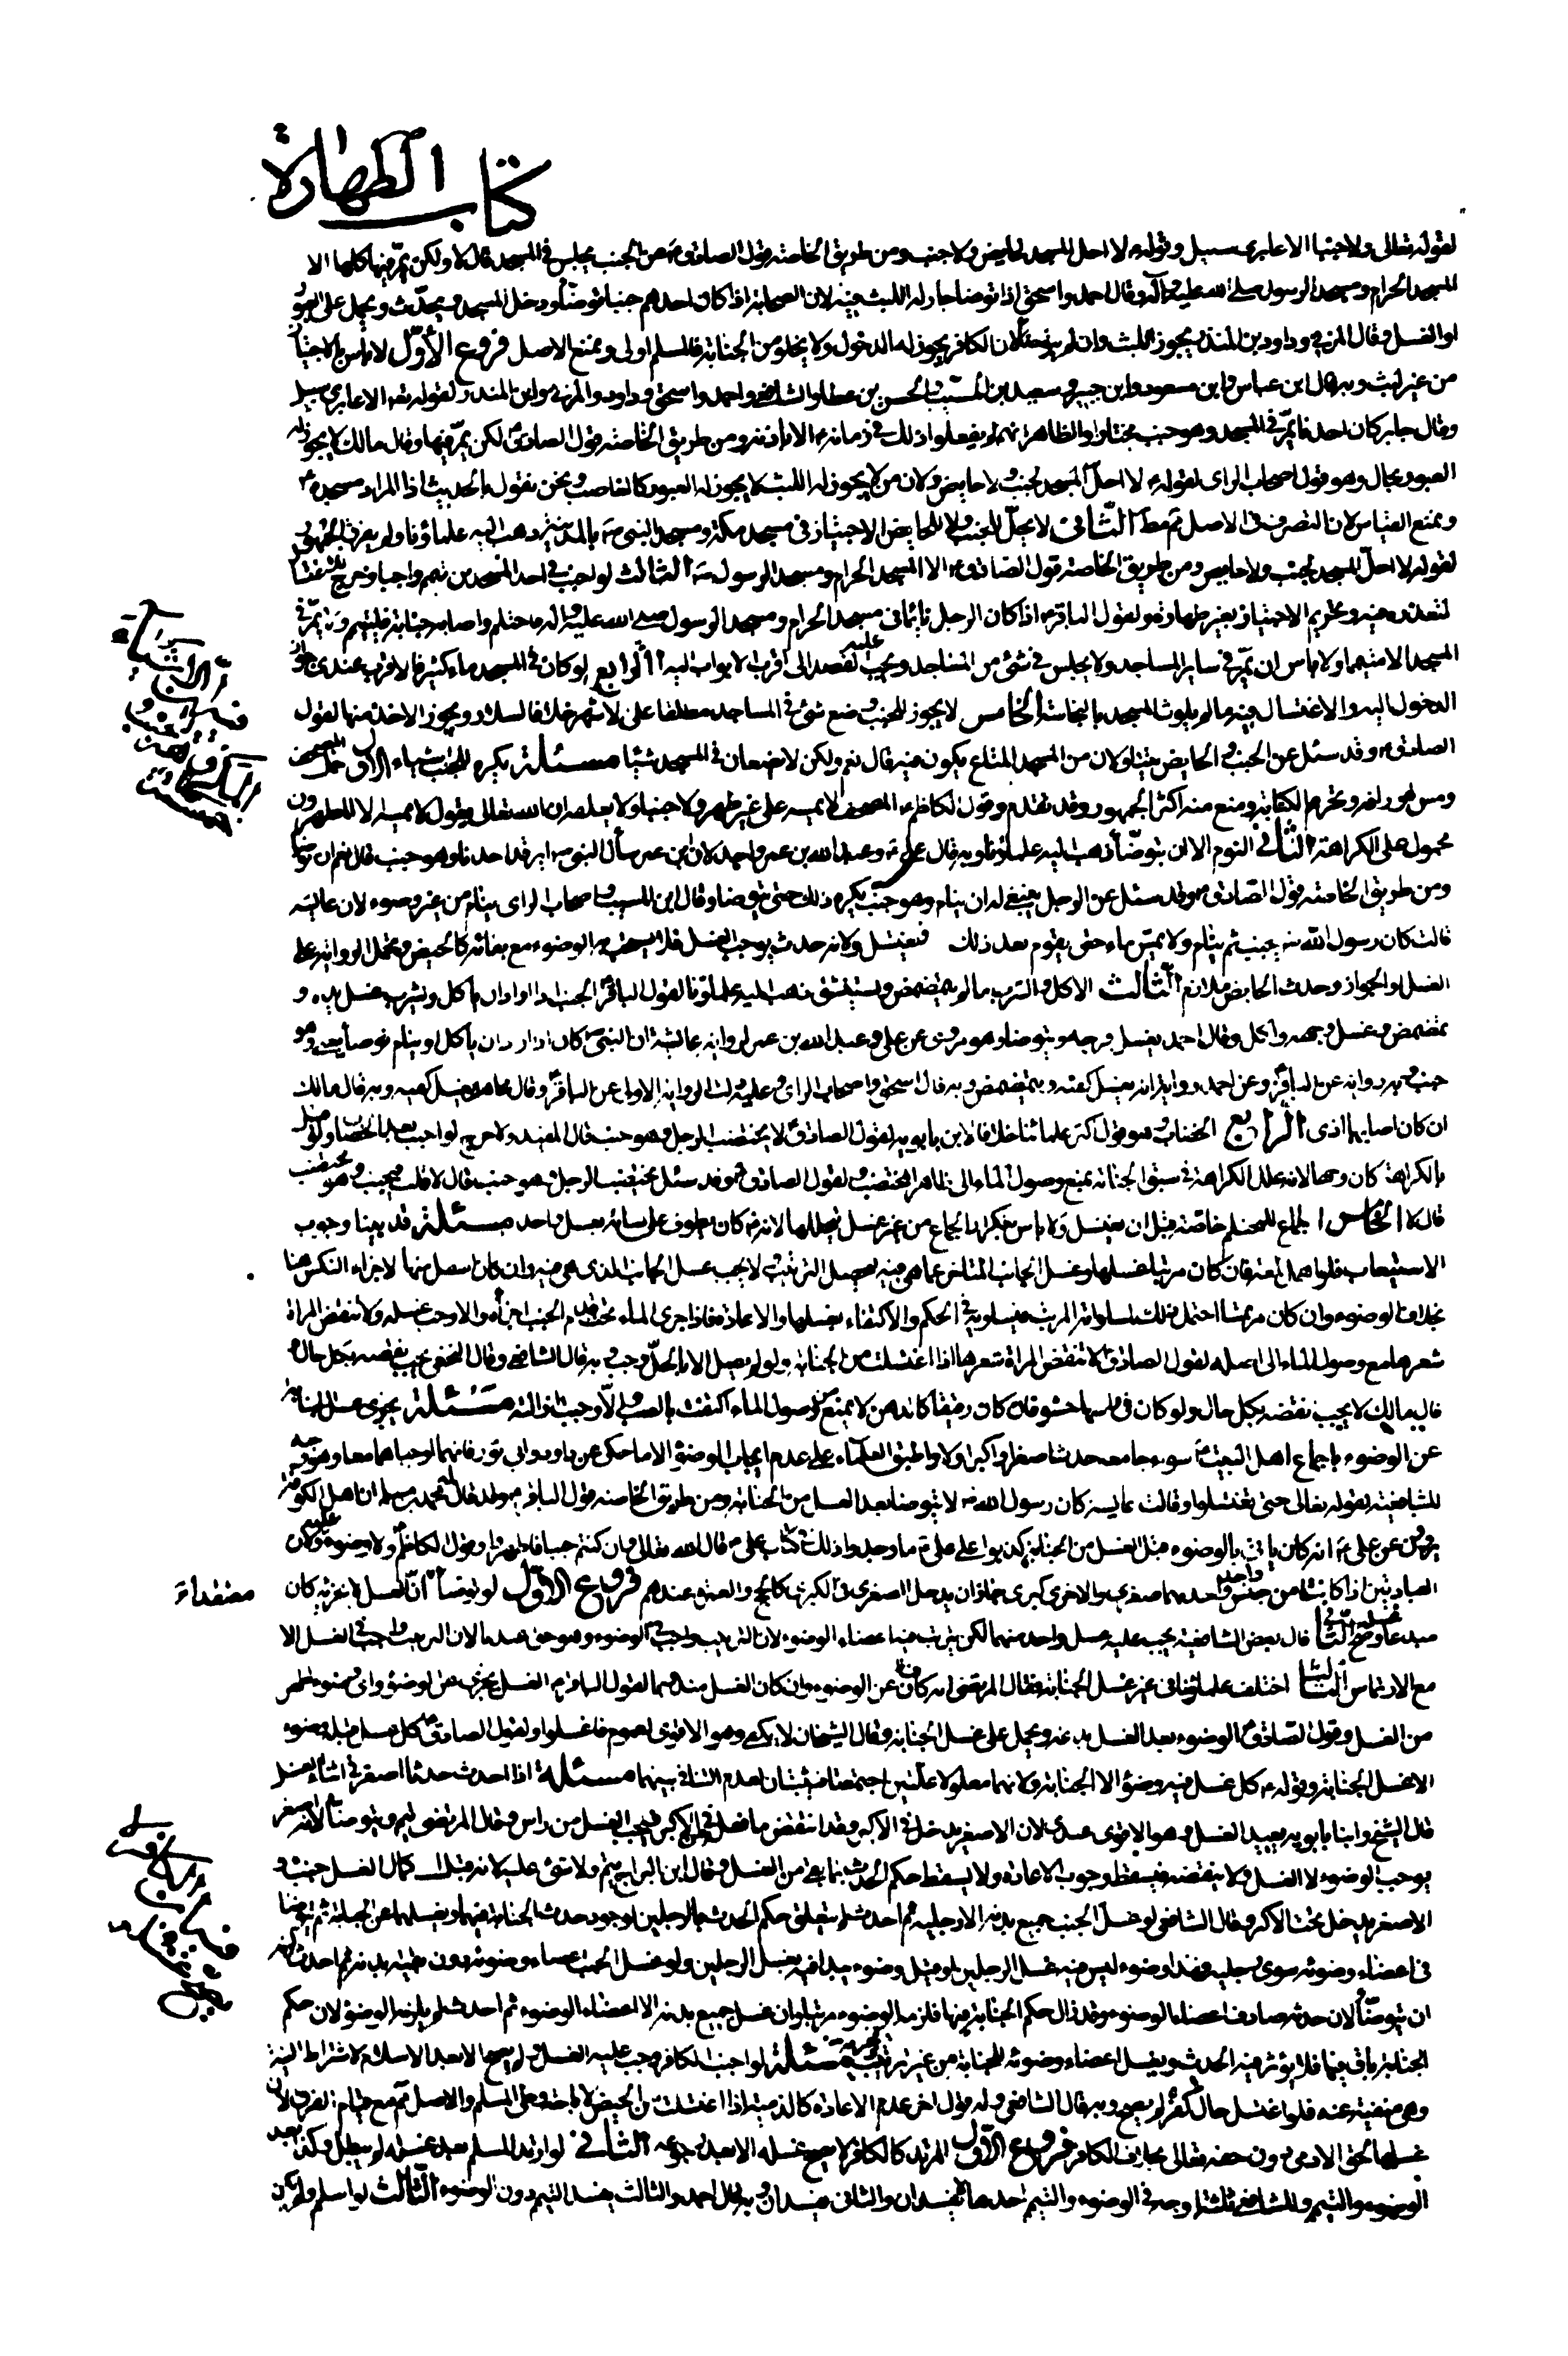 كتاب الطهارة
لقوله تعالى ولا جنبا الا عابري سبيل وقوله ع لا احل المسجد لحايض ولا جنب ومن طريق الخاصة قول الصادق ع عن الجنب يجلس في المسجد قال لا ولكن يمر فيها كلها الا
المسجد الحرام ومسجد الرسول صلى الله عليه وآله وقال احمد واسحق اذا توضا جاز له اللبث فيه لان الصحابة اذا كان احدهم جنبا توضأ ودخل المسجد فيتحدث ويحمل على
او الغسل وقال المزني وداود بن المنذر يجوز اللبث وان لم يتوضأ لان الكافر يجوز له الدخول ولا يخلو من الجنابة فالمسلم اولى ويمنع الاصل فروع الأول لا باس بالاجتياز
من غير لبث وبه قال ابن عباس وابن مسعود وابن جبير وسعيد بن المسيب والحسن بن عطا والشافعي واحمد واسحق وداود والمزني وابن المنذر لقوله تعه الا عابري سبيل
وقال جابر كان احدنا يمر في المسجد وهو جنب مجتازا والظاهر انهم لم يفعلوا ذلك في زمانه ع الا باذنه ومن طريق الخاصة قول الصادق ع لكن يمر فيها وقال مالك لا يجوز له
العبور بحال وهو قول اصحاب الراى لقوله ع لا احل المسجد لجنب ولا حايض ولان من لا يجوز له اللبث لا يجوز له العبور كالغاصب ونحن نقول بالحديث اذ المراد مسجده ع
ويمنع القياس لان التصرف في الاصل ثم مط الثاني لا يحل للجنب ولا للحايض الاجتياز في مسجد مكة ومسجد النبي ص بالمدينة ذهب اليه علماؤنا ولم يعرفه الجمهور
لقوله لا احل المسجد لجنب ولا حايض ومن طريق الخاصة قول الصادق ع الا المسجد الحرام ومسجد الرسول ص الثالث لو اجنب في احد المسجدين تيمم واجبا وخرج للاغتسال
لتعذره فيه وتحريم الاجتياز بغير طهارة ولقول الباقر ع اذا كان الرجل نائما في مسجد الحرام ومسجد الرسول صلى الله عليه وآله فاحتلم واصابه جنابة فليتيمم ولا يمر في
المسجد الا متيمما ولا باس ان يمر في ساير المساجد ولا يجلس في شئ من المساجد ويجب عليه القصد الى اقرب الابواب اليه الرابع لو كان في المسجد ماء كثير فالاقرب عندي جواز
الدخول اليه والاغتسال فيه ما لم يلوث المسجد بالنجاسة الخامس لا يجوز للجنب وضع شئ في المساجد مطلقا على الاشهر خلافا لسلار ويجوز الاخذ منها لقول
الصادق ع وقد سئل عن الجنب والحايض يتناولان من المسجد المتاع يكون فيه قال نعم ولكن لا يضعان في المسجد شيئا مسئلة يكره للجنب اشياء الاول حمل المصحف
ومس هوامشه ويحرم الكتابة ومنع منه اكثر الجمهور وقد تقدم وقول الكاظم ع المصحف لا تمسه على غير طهر ولا جنبا ولا تعلقه ان الله تعالى يقول لا يمسه الا المطهرون
محمول على الكراهة الثاني النوم الا ان يتوضأ ذهب اليه علماؤنا وبه قال علي ع وعبد الله بن عمر واحمد لان ابن عمر سأل النبي ص ايرقد احدنا وهو جنب قال نعم ان توضأ
ومن طريق الخاصة قول الصادق ع وقد سئل عن الرجل ينبغي له ان ينام وهو جنب يكره ذلك حتى يتوضا وقال ابن المسيب واصحاب الراى ينام من غير وضوء لان عايشة
قالت كان رسول الله ص يجنب ثم ينام ولا يمس ماء حتى يقوم بعد ذلك فيغتسل ولانه حدث يوجب الغسل فلا يستحب به الوضوء مع بقائه كالحيض ونحمل الرواية على
الغسل والجواز وحدث الحايض ملازم الثالث الاكل والشرب ما لم يتمضمض ويستنشق ذهب اليه علماؤنا لقول الباقر ع الجنب اذا اراد ان ياكل ويشرب غسل يده و
تمضمض وغسل وجهه واكل وقال احمد يغسل فرجه ويتوضا وهو مروى عن علي وعبد الله بن عمر لرواية عائشة ان النبي ص كان اذا اراد ان ياكل او ينام توضا يعني وهو
جنب وهو رواية عن الباقر ع وعن احمد رواية انه يغسل كفيه ويتمضمض وبه قال اسحق واصحاب الراى وعليه دلت الرواية الاولى عن الباقر ع وقال مجاهد يغسل كفيه وبه قال مالك
ان كان اصابهما اذى الرابع الخضاب وهو قول اكثر علمائنا خلافا لابن بابويه لقول الصادق ع لا يختضب الرجل وهو جنب قال المفيد ولا حرج لو اجنب بعد الخضاب ولو قيل
بالكراهة كان وجها لانه علل الكراهة في سبق الجنابة بمنع وصول الماء الى ظاهر المختضب ولقول الصادق ع وقد سئل يختضب الرجل وهو جنب قال لا قلت فيجنب وهو مختضب
قال لا الخامس الجماع للمحتلم خاصة قبل ان يغتسل ولا باس بتكرار الجماع من غير غسل يتخللها لانه ع كان يطوف على نسائه بغسل واحد مسئلة قد بينا وجوب
الاستيعاب فلو اهمل لمعة فان كان مرتبا غسلها وغسل الجانب المتاخر عما هي فيه ليحصل الترتيب ولا يجب غسل الجانب الذي هي فيه وان كان اسفل منها لاجزاء النكس هنا
بخلاف الوضوء وان كان مرتمسا احتمل ذلك لمساواته المرتب فيساويه في الحكم والاكتفاء بغسلها والاعادة فاذا جرى الماء تحت قدم الجنب اجزأه والا وجب غسله ولا تنقض المراة
شعرها مع وصول الماء الى اصله لقول الصادق ع لا تنقض المراة شعرها اذا اغتسلت من الجنابة ولو لم يصل الا بالحل وجب وبه قال الشافعي وقال النخعي يجب نقضه بكل حال
قال مالك لا يجب نقضه بكل حال ولو كان في راسها حشو فان كان رقيقا كالدهن لا يمنع من وصول الماء اكتفت بالصب والا وجب ازالته مسئلة يجزى غسل الجنابة
عن الوضوء باجماع اهل البيت ع سواء جامعه حدث اصغر او اكبر او لا واطبق العلماء على عدم ايجاب الوضوء الا ما حكى عن داود وابي ثور فانهما اوجباهما معا وهو وجه
للشافعية لقوله تعالى حتى تغتسلوا وقالت عايشة كان رسول الله ص لا يتوضا بعد الغسل من الجنابة ومن طريق الخاصة قول الباقر ع وقد قال له محمد بن مسلم ان اهل الكوفة
يروون عن علي ع انه كان يامر بالوضوء قبل الغسل من الجنابة كذبوا على علي ع ما وجدوا ذلك في كتاب علي ع قال الله تعالى وان كنتم جنبا فاطهروا وقول الكاظم ع ولا وضوء عليه ولان
العبادتين اذا كانتا من جنس واحد واحديهما صغرى والاخرى كبرى جاز ان يدخل الصغرى في الكبرى كالحج والعمرة عندهم فروع الأول لو توضأ ان الغسل لا يجزيه كان
معتقداً
مبدعا وصح غسله الثاني قال بعض الشافعية يجب عليه غسل واحد منهما لكن يترتب فيه اعضاء الوضوء لان الترتيب واجب في الوضوء وهو حق عندنا لان الترتيب واجب في الغسل الا
مع الارتماس الثالث اختلف علماؤنا في غير غسل الجنابة فقال المرتضى انه كاف عن الوضوء وان كان الغسل مندوبا لقول الباقر ع الغسل يجزى عن الوضوء واى وضوء اطهر
من الغسل وقول الصادق ع الوضوء بعد الغسل بدعة ويحمل على غسل الجنابة وقال الشيخان لا يكفي وهو الاقوى لعموم فاغسلوا ولقول الصادق ع كل غسل قبله وضوء
الا غسل الجنابة وقوله ع كل غسل فيه وضوء الا الجنابة ولانهما معلولا علتين اجتمعتا فيثبتان لعدم التنافي بينهما مسئلة اذا احدث حدثا اصغر في اثناء الغسل
قال الشيخ وابنا بابويه يعيد الغسل وهو الاقوى عندي لان الاصغر يدخل في الاكبر وقد انتقض ما فعل فيجب الغسل من راس وقال المرتضى يتم ويتوضأ لان الاصغر
يوجب الوضوء لا الغسل ولا ينقضه فيسقط وجوب الاعادة ولا يسقط حكم الحدث بما بقي من الغسل وقال ابن البراج يتم ولا شئ عليه لانه قبل اكمال الغسل جنب و
الاصغر يدخل تحت الاكبر وقال الشافعي لو غسل الجنب جميع بدنه الا رجليه ثم احدث لم يتعلق حكم الحدث بالرجلين لوجود حدث الجنابة فيهما ويغسلهما عن الجنابة ثم يتوضا
في اعضاء وضوئه سوى رجليه فهذا وضوء ليس فيه غسل الرجلين او قيل وضوء يبدا فيه بغسل الرجلين ولو غسل الجنب اعضاء وضوئه دون بقية بدنه ثم احدث لزمه
ان يتوضأ لان حدثه صادف اعضاء الوضوء وقد زال حكم الجنابة فيها فلزمه الوضوء مرتبا ولو ان غسل جميع بدنه الا اعضاء الوضوء ثم احدث لم يلزمه الوضوء لان حكم
الجنابة باق فيها فلا يؤثر فيه الحدث ويغسل اعضاء وضوئه للجنابة من غير ترتيب مسئلة لو اجنب الكافر وجب عليه الغسل ولم يصح الا بعد الاسلام لاشتراط النية
وهي منفية عنه فلو اغتسل حال كفره لم يصح وبه قال الشافعي وله قول اخر عدم الاعادة كالذمية اذا اغتسلت من الحيض لاباحة وطى المسلم والاصل ثم مع قيام الفرق لان
غسلها لحق الادمي دون حقه تعالى بخلاف الكافر فروع الأول المرتد كالكافر لا يصح غسله الا بعد رجوعه الثاني لو ارتد المسلم بعد غسله لم يبطل وكذا بعد
الوضوء والتيمم وللشافعي ثلثة اوجه في الوضوء والتيمم احدها لا يفسدان والثاني يفسدان وبه قال احمد والثالث يفسد التيمم دون الوضوء الثالث لو اسلم ولم يكن